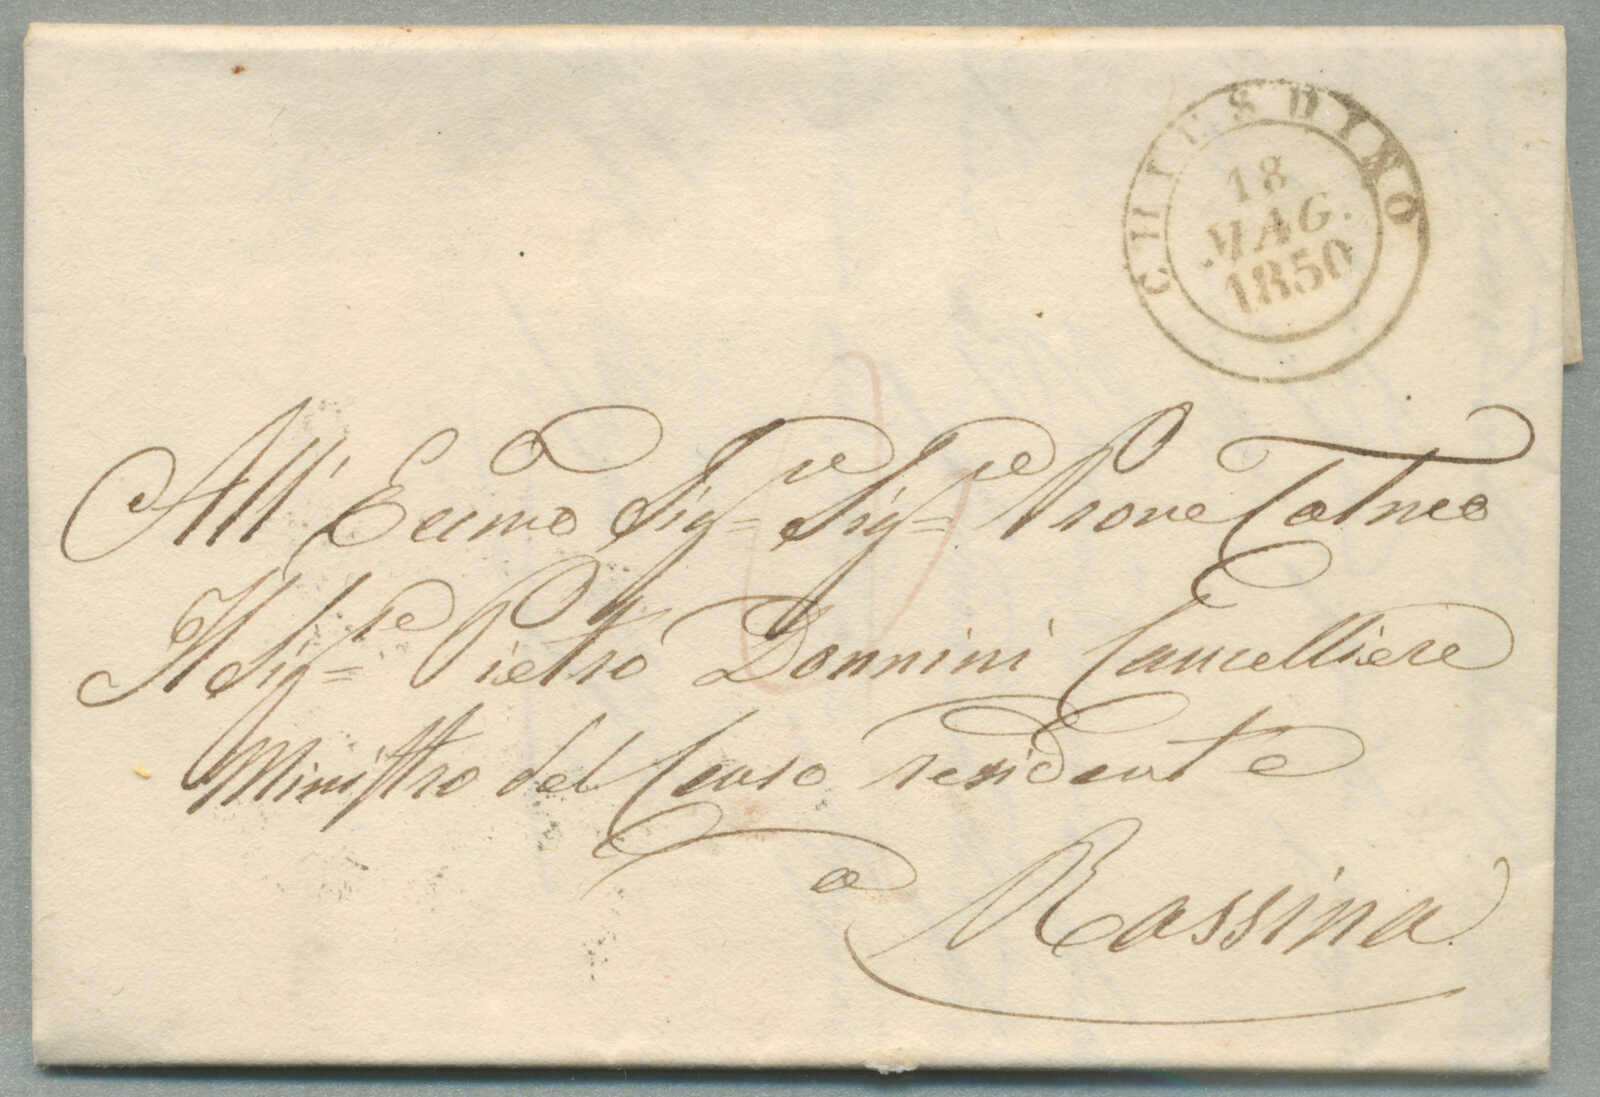 CHIUSDINO
18
MAG.
1850
All' Ecc.mo Sig.re Sig.re Prone Colmo
Il Sig.re Pietro Donnini Cancelliere
Ministro del Censo residente
a Rassina